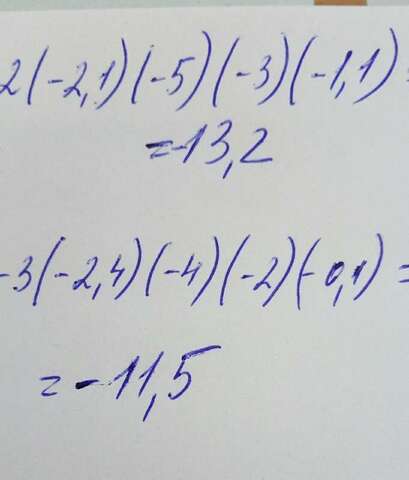 2(-2,1)(-5)(-3)(-1,1)=
=-13,2
-3(-2,4)(-4)(-2)(-0,1)=
=-11,5